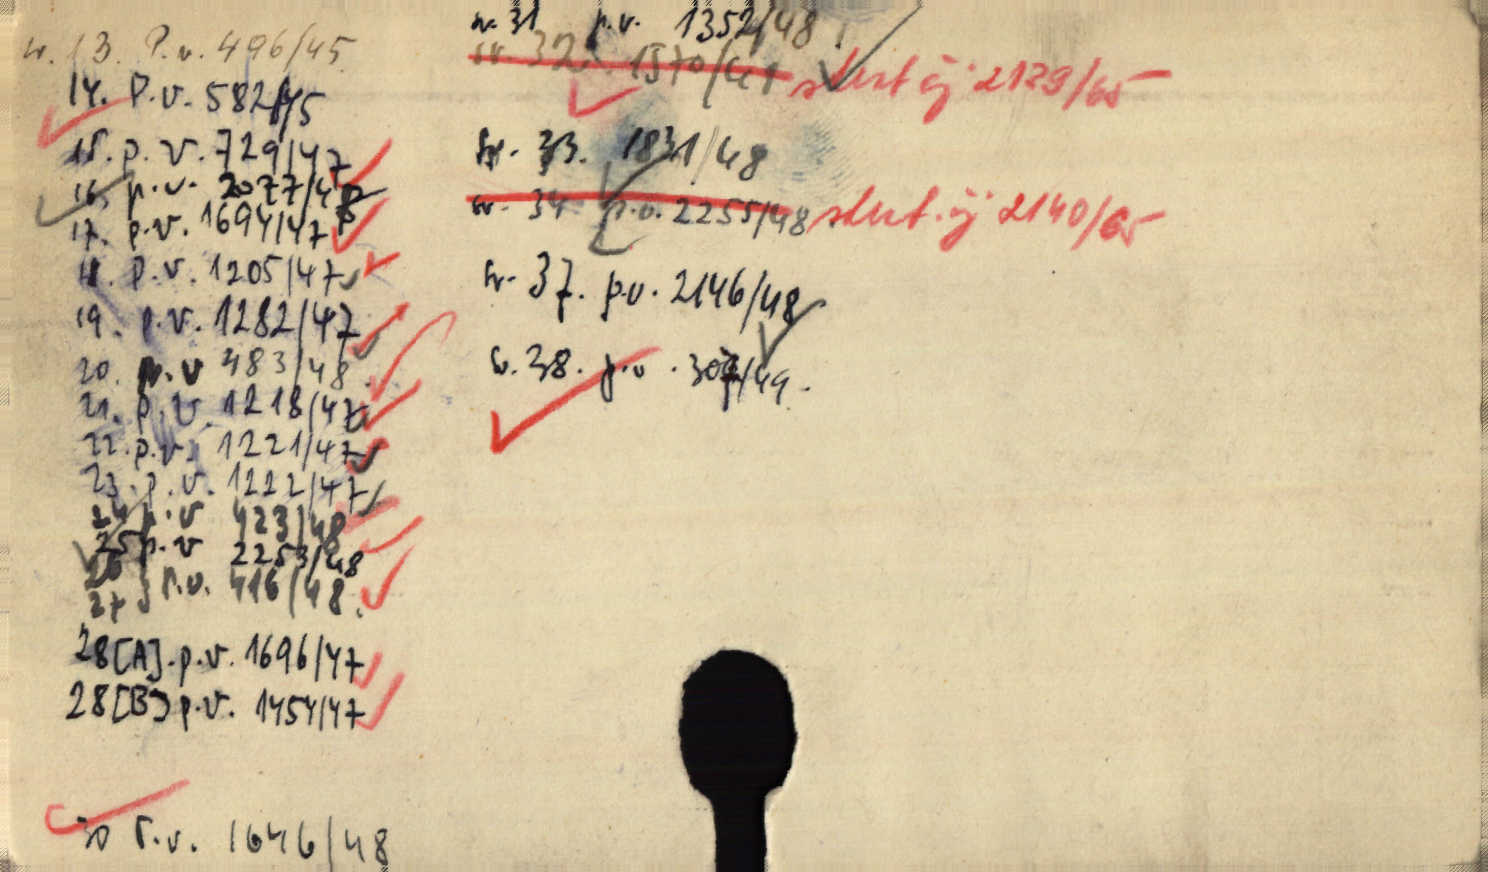 w. 13. P.v. 496/45
14. P.v. 582/45
15. p.v. 729/47
16. p.v. 2077/48
17. p.v. 1694/47
18. p.v. 1205/47
19. p.v. 1282/47
20. p.v 483/48
21. p.v. 1218/47
22. p.v. 1221/47
23. p.v. 1222/47
24 p.v 423/48
25 p.v 2253/48
26
27 } p.v. 416/48.
28[A]. p.v. 1696/47
28[B] p.v. 1454/47
30 P.v. 1646/48
w. 31 p.v. 1352/48
w 32. 1570/49 slut új 2139/65
w. 33. 1831/48
w. 34 p.v. 2255/48 slut. új 2140/65
w. 37. p.v. 2146/48
w. 38. p.v. 307/49.